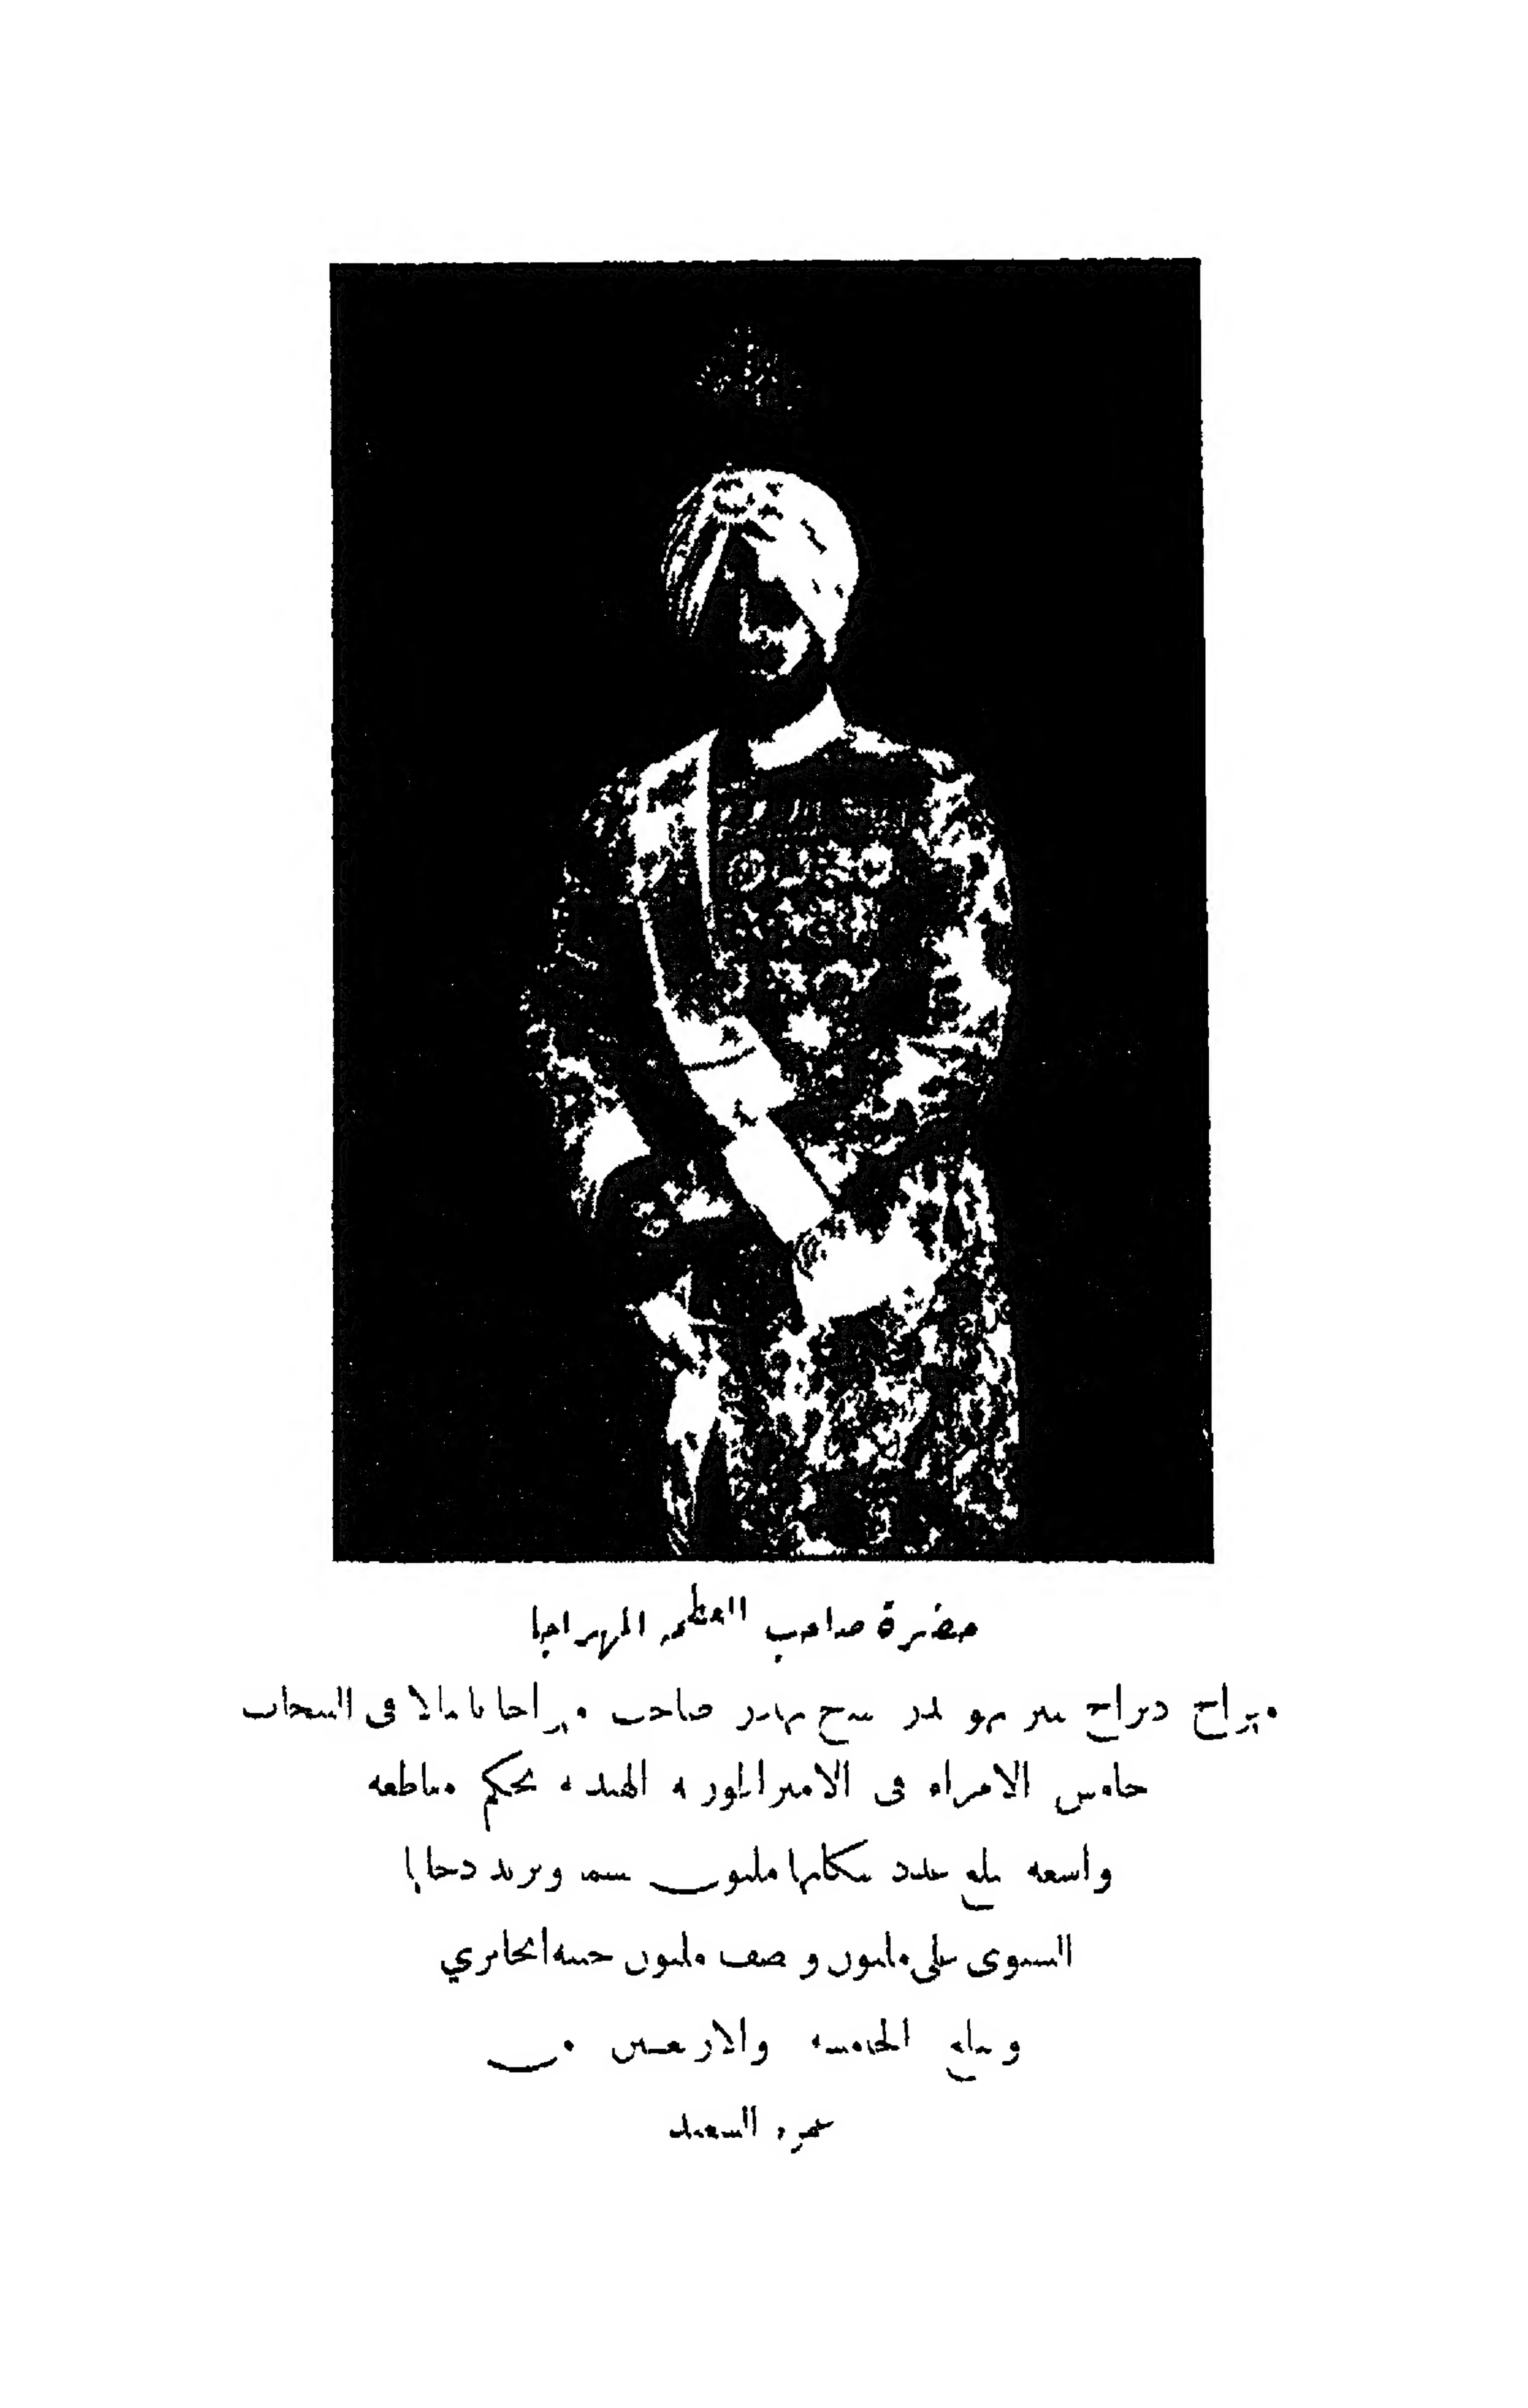 حضرة صاحب العظمة المهراجا
مهراج دهراج سر بهو ندر سنج بهادر صاحب مهراجا باتيالا فى البنجاب
خامس الامراء فى الامبراطورية الهندية يحكم مقاطعة
واسعة يبلغ عدد سكانها مليون نسمة ويزيد دخلها
السنوى على مليون ونصف مليون جنيه انجليزي
ويبلغ الخامسة والاربعين من
عمره السعيد